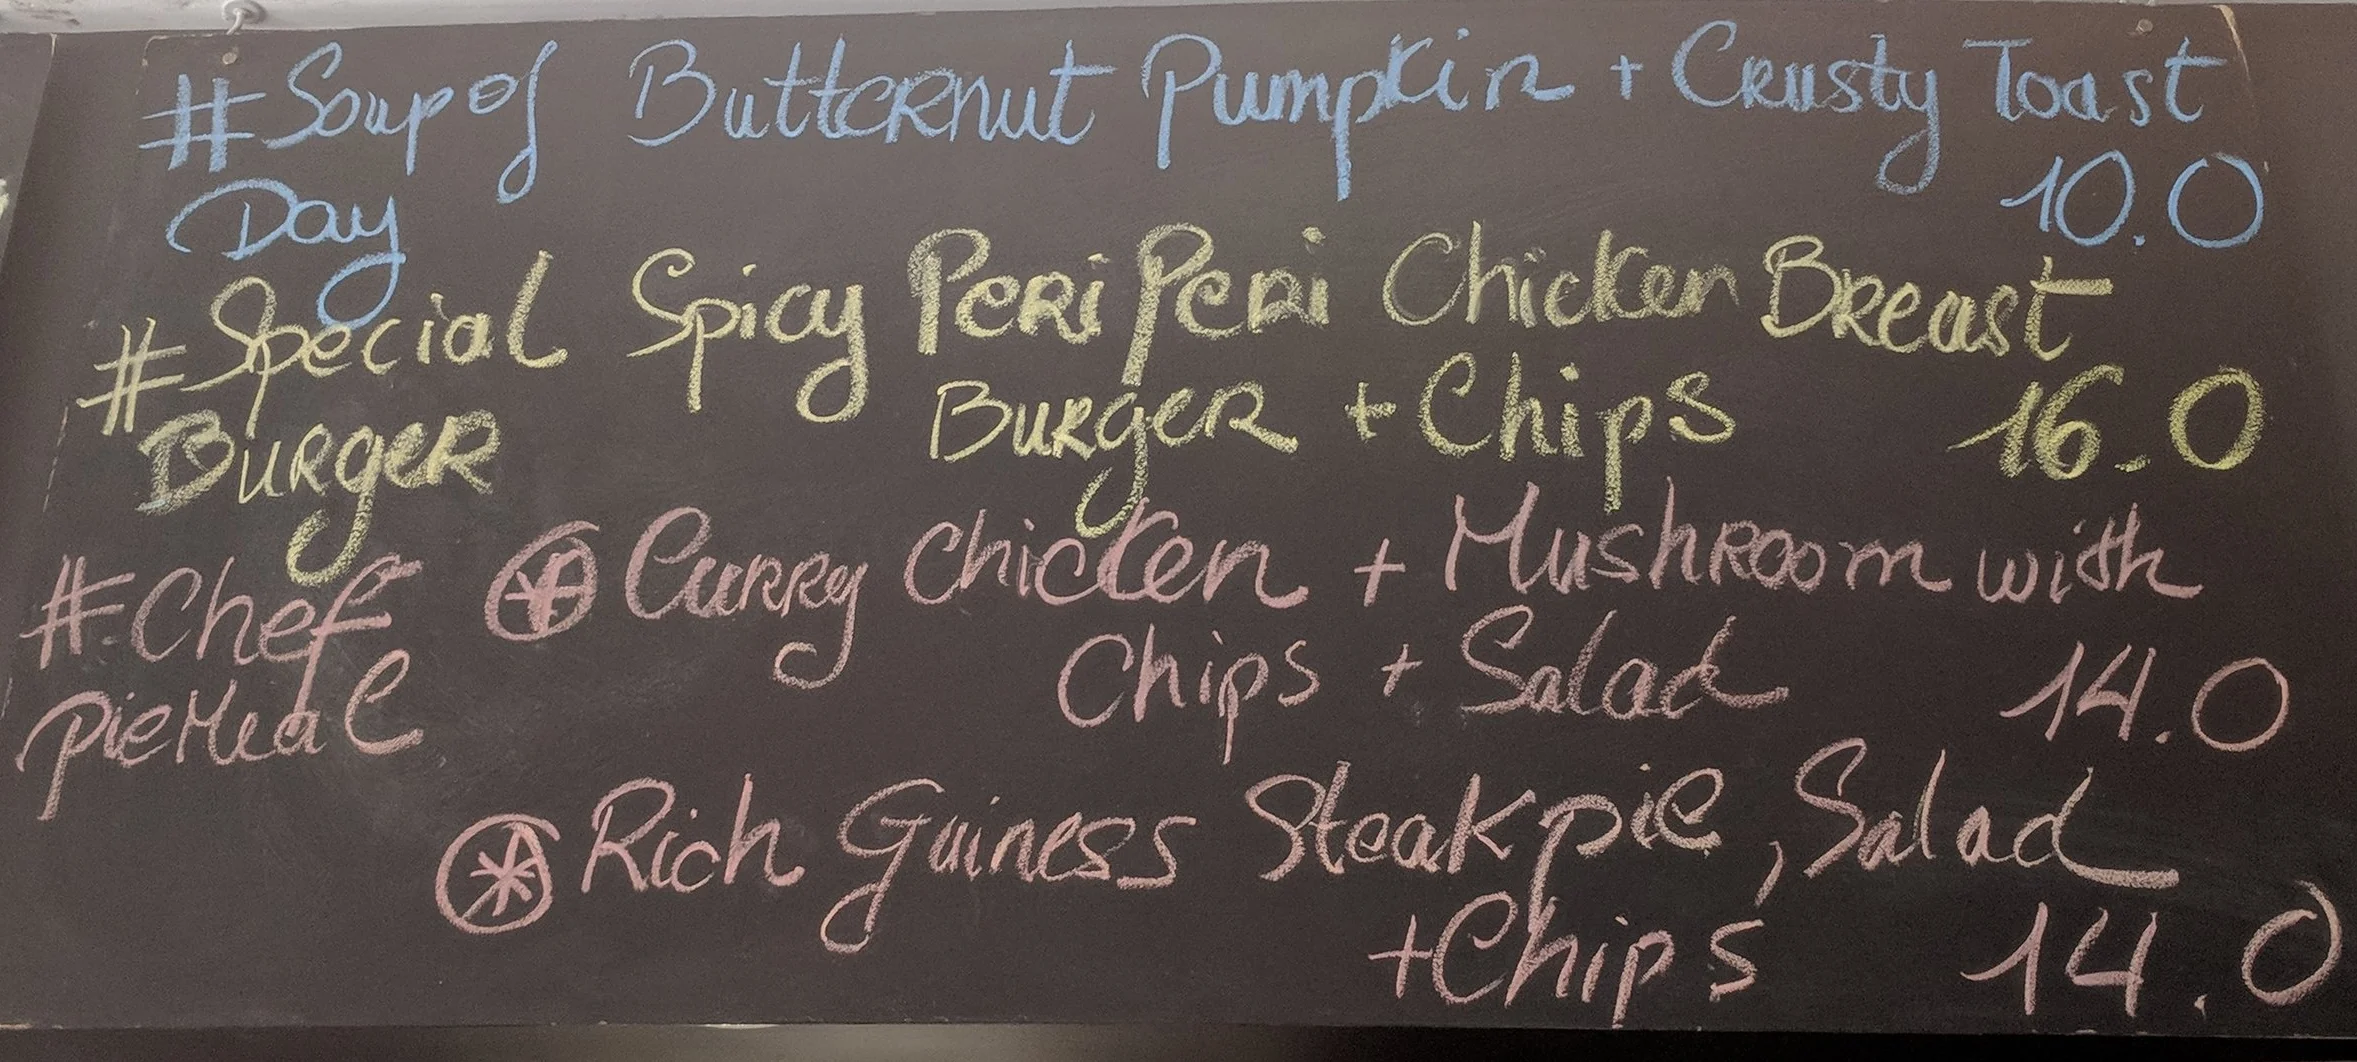 #Soup of Butternut Pumpkin + Crusty Toast
Day 10.0
#Special Spicy Peri Peri Chicken Breast
Burger Burger + Chips 16.0
#Chef ⊛ Curry Chicken + Mushroom with
Pie Meal Chips + Salad 14.0
⊛ Rich Guiness Steak pie, Salad
+Chips 14.0